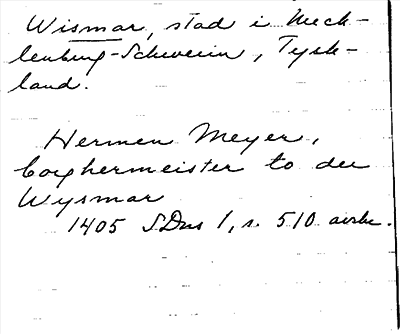 Wismar, stad i Meck-
lenburg-Schwerin, Tysk-
land.
Hermen Meyer,
borghermeister to der
Wysmar
1405 SDns 1, s. 510